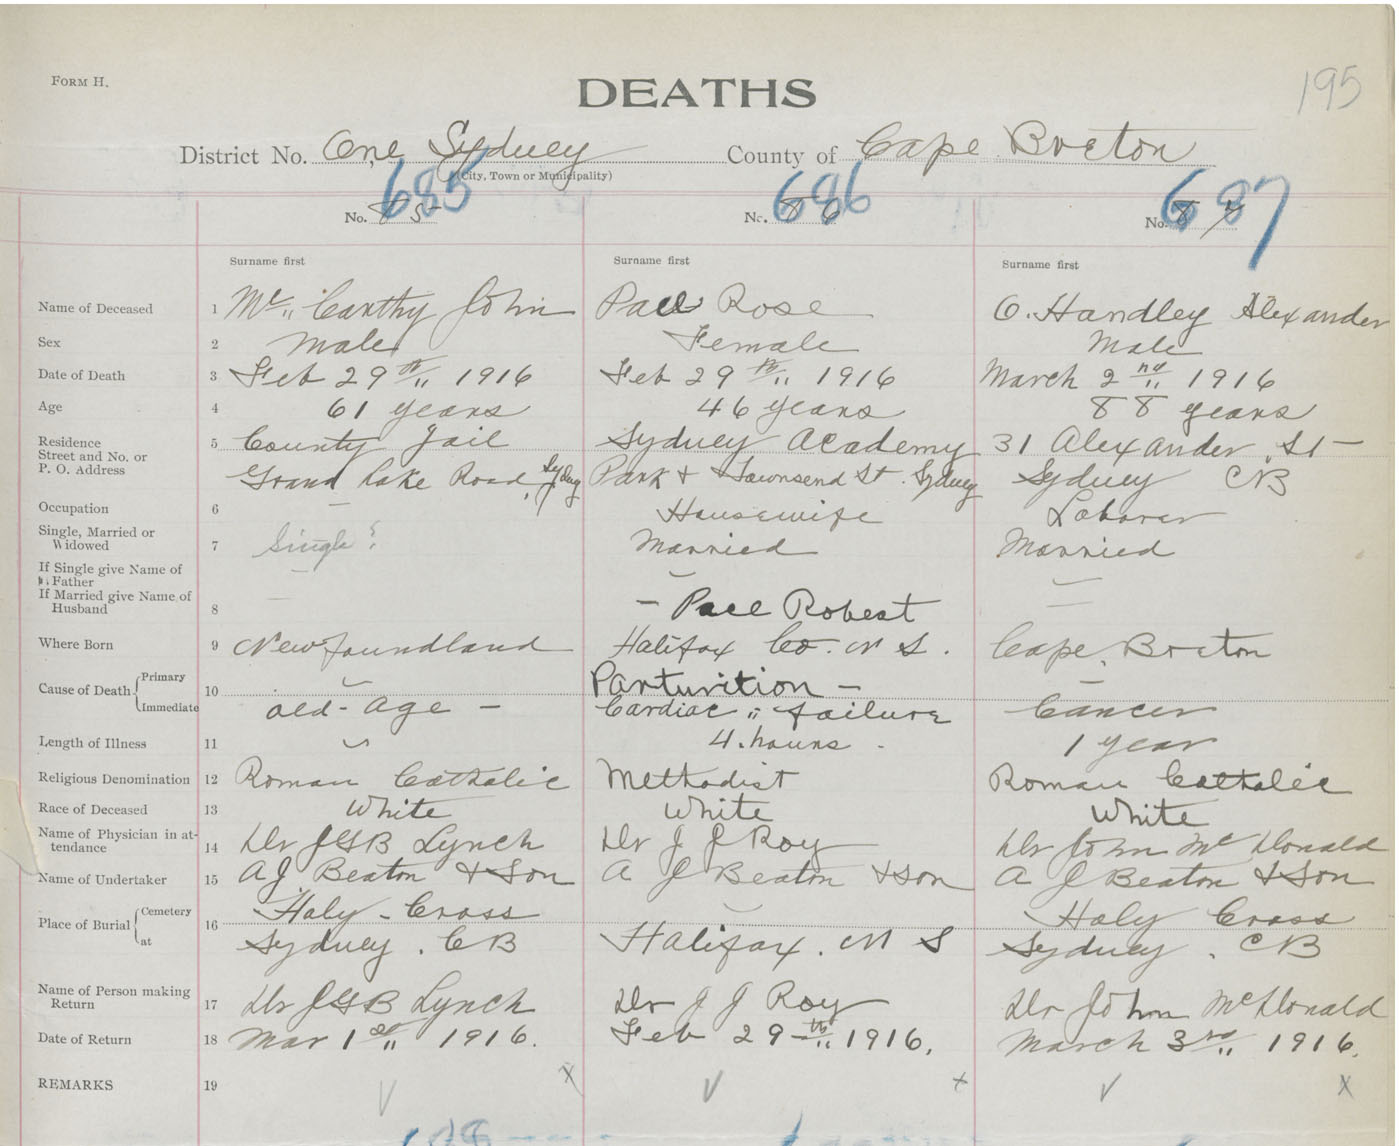 FORM H.
DEATHS
195
District No. One Sydney County of Cape Breton
(City, Town or Municipality)
685 686 687
No. 85 No. 86 No. 87
Surname first Surname first Surname first
Name of Deceased 1 Mc Carthy John Pace Rose O. Handley Alexander
Sex 2 Male Female Male
Date of Death 3 Feb 29th 1916 Feb 29th 1916 March 2nd 1916
Age 4 61 years 46 years 88 years
Residence 5 County Jail Sydney Academy 31 Alexander St
Street and No. or
P. O. Address Grand Lake Road, Sydney Park & Townsend St. Sydney Sydney CB
Occupation 6 — Housewife Laborer
Single, Married or
Widowed 7 Single? Married Married
If Single give Name of
Father — — —
If Married give Name of
Husband 8 — — Pace Robert —
Where Born 9 Newfoundland Halifax Co. N S. Cape Breton
Cause of Death Primary 10 — Parturition — —
Immediate old-Age — Cardiac failure Cancer
Length of Illness 11 — 4 hours. 1 year
Religious Denomination 12 Roman Catholic Methodist Roman Catholic
Race of Deceased 13 White White White
Name of Physician in at-
tendance 14 Dr JGB Lynch Dr J J Roy Dr John Mc Donald
Name of Undertaker 15 AJ Beaton & Son A J Beaton & Son A J Beaton & Son
Place of Burial Cemetery 16 Holy-Cross — Holy Cross
at Sydney. CB Halifax. N S Sydney. CB
Name of Person making
Return 17 Dr JGB Lynch Dr J J Roy Dr John McDonald
Date of Return 18 Mar 1st 1916. Feb 29th 1916. March 3rd 1916.
REMARKS 19